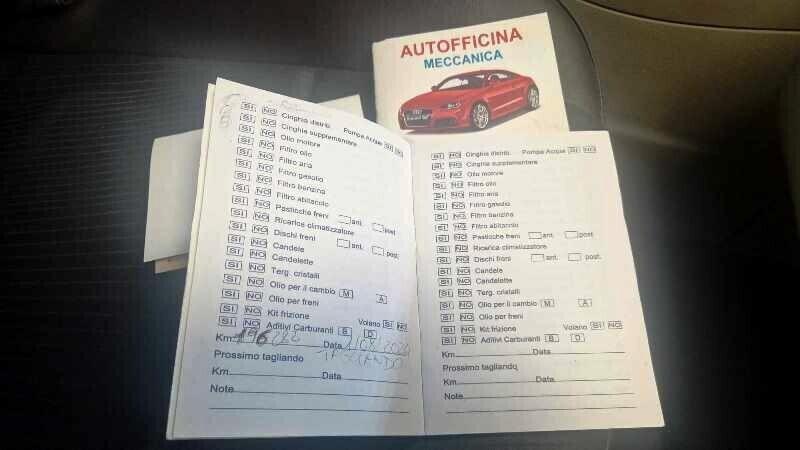 AUTOFFICINA
MECCANICA
SI NO Cinghia distrib. Pompa Acqua SI NO
SI NO Cinghia supplementare
SI NO Olio motore
SI NO Filtro olio
SI NO Filtro aria
SI NO Filtro gasolio
SI NO Filtro benzina
SI NO Filtro abitacolo
SI NO Pasticche freni ant. post
SI NO Ricarica climatizzatore
SI NO Dischi freni ant. post.
SI NO Candele
SI NO Candelette
SI NO Terg. cristalli
SI NO Olio per il cambio M A
SI NO Olio per freni
SI NO Kit frizione Volano SI NO
SI NO Aditivi Carburanti B D
Km. Data
TAGLIANDO
Prossimo tagliando
Km. Data
Note
SI NO Cinghia distrib. Pompa Acqua SI NO
SI NO Cinghia supplementare
SI NO Olio motore
SI NO Filtro olio
SI NO Filtro aria
SI NO Filtro gasolio
SI NO Filtro benzina
SI NO Filtro abitacolo
SI NO Pasticche freni ant. post
SI NO Ricarica climatizzatore
SI NO Dischi freni ant. post.
SI NO Candele
SI NO Candelette
SI NO Terg. cristalli
SI NO Olio per il cambio M A
SI NO Olio per freni
SI NO Kit frizione Volano SI NO
SI NO Aditivi Carburanti B D
Km. Data
Prossimo tagliando
Km. Data
Note